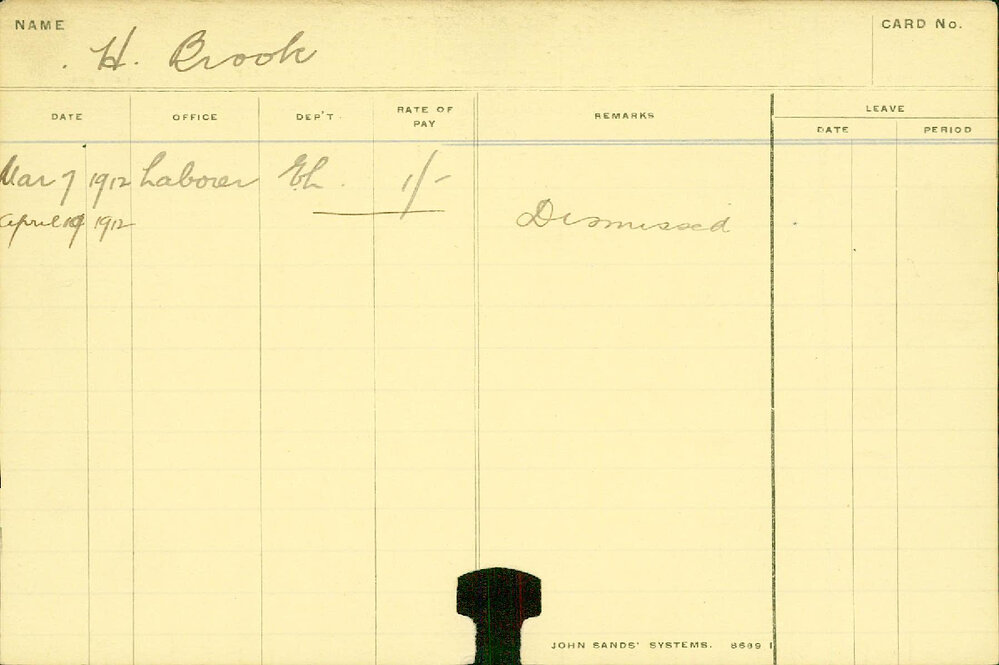 NAME
CARD No.
H. Brook
DATE OFFICE DEP'T. RATE OF PAY REMARKS LEAVE
DATE PERIOD
Mar 7 1912 Laborer 1/-
April 1912 Dismissed
JOHN SANDS' SYSTEMS. 8689